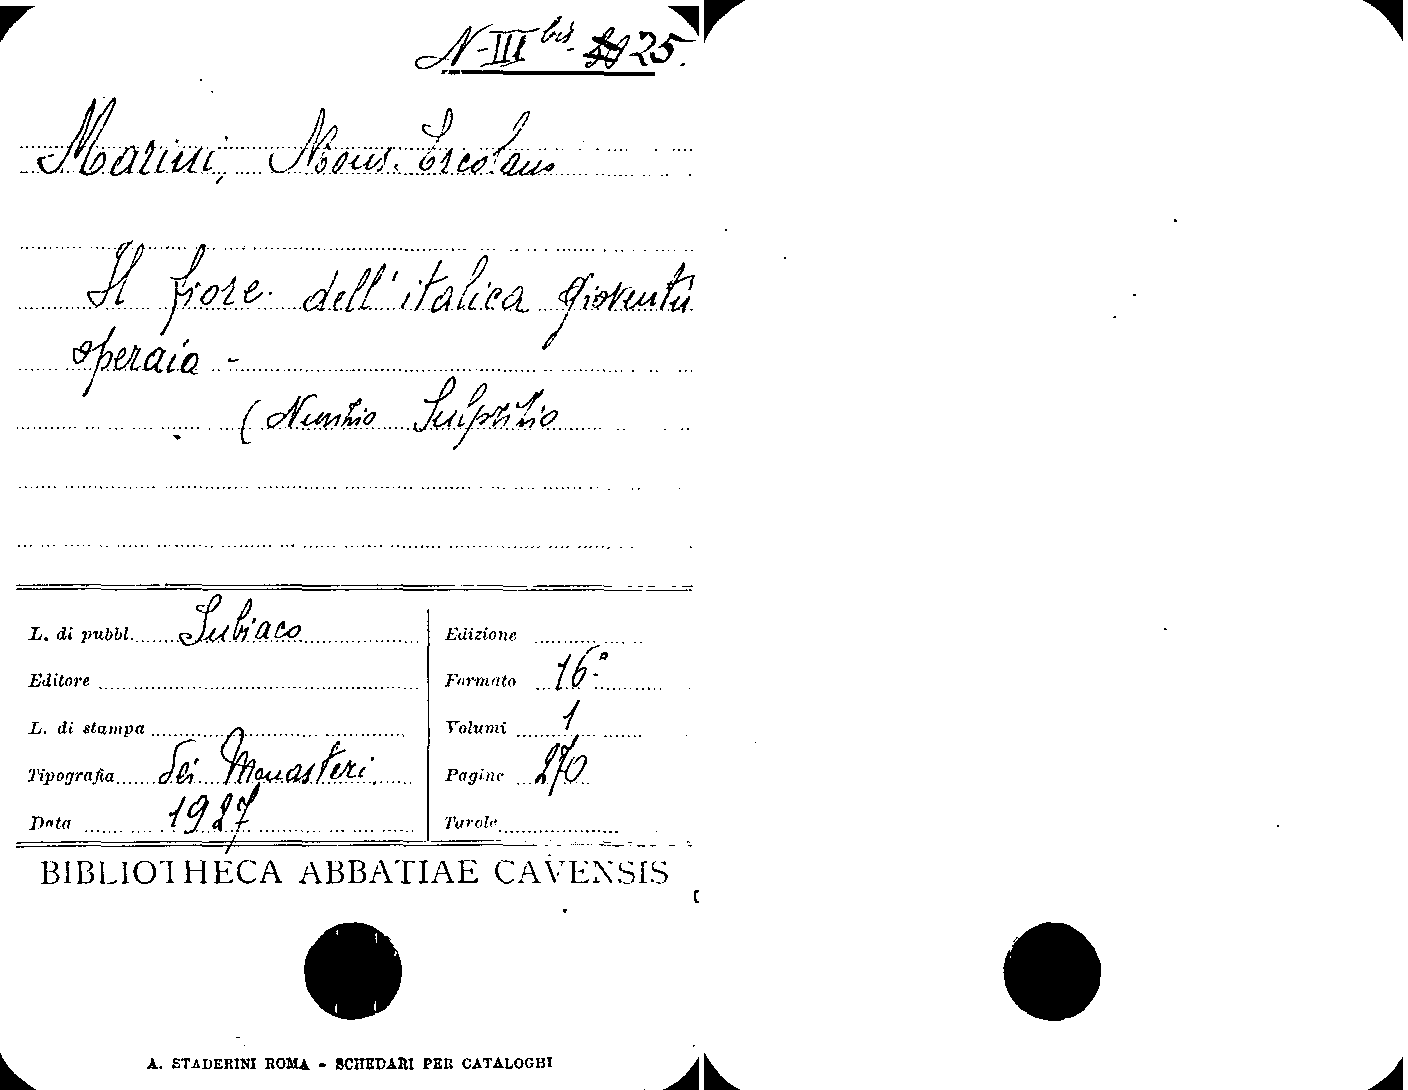 N-III bis - 25.
Marini, Mons. Ercolano
Il fiore dell'italica gioventù
operaia -
(Nunzio Sulprizio
L. di pubbl. Subiaco
Editore
L. di stampa
Tipografia dei Monasteri.
Data 1927
Edizione
Formato 16º
Volumi 1
Pagine 270
Tavole
BIBLIOTHECA ABBATIAE CAVENSIS
A. STADERINI ROMA - SCHEDARI PER CATALOGHI